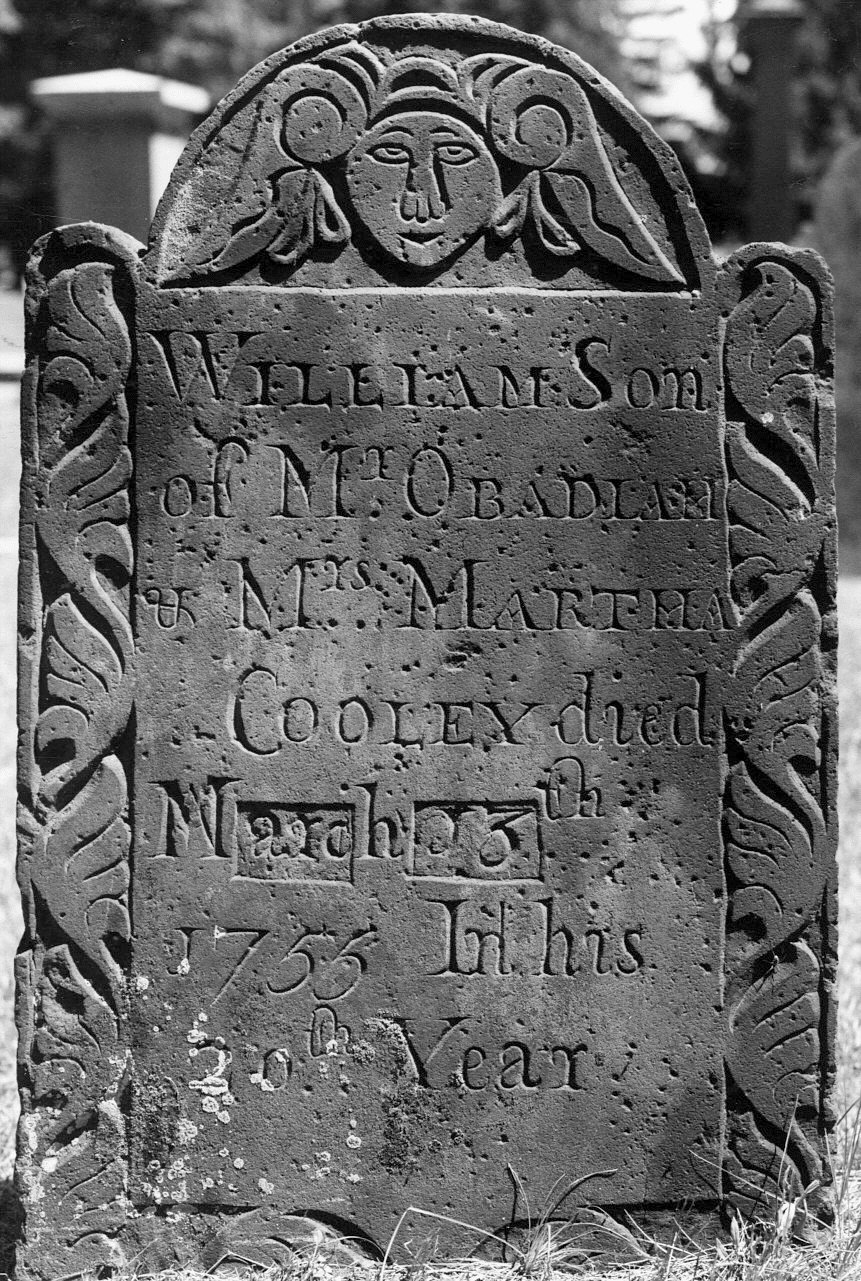 WILLIAM Son
of Mr. OBADIAH
& Mrs. MARTHA
COOLEY died
March 13th
1755 In his
20th Year